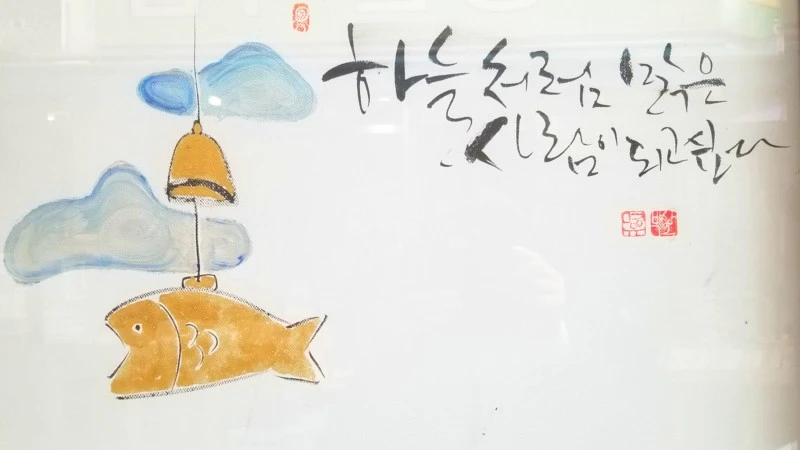 하늘처럼 맑은
사람이 되고 싶다